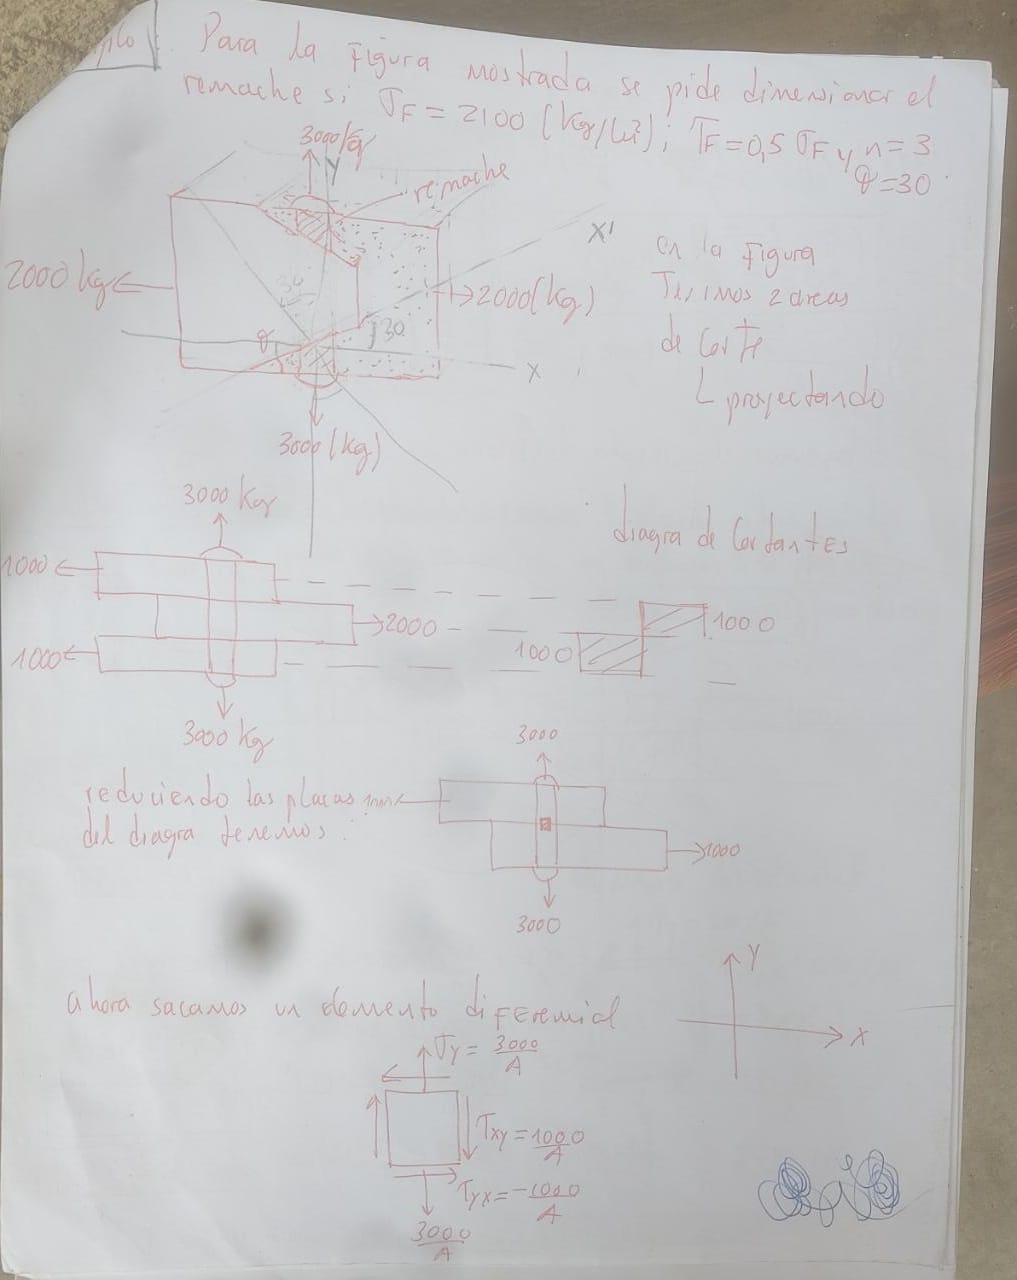 Para la Figura mostrada se pide dimensionar el
remache si σF = 2100 (kg/cm²); TF = 0,5 σF y n = 3
θ = 30
3000 kg
Y
remache
X'
2000 kg
30
2000 (kg)
30
θ
X
3000 (kg)
en la Figura
Tenimos 2 areas
de corte
proyectando
3000 Kg
diagra de CortantEs
1000
2000
1000
1000
1000
3000 Kg
3000
reduciendo las placas
del diagra tenemos:
1000
3000
ahora sacamos un elemento diFEremcial
Y
X
σy = 3000/A
Txy = 1000/A
Tyx = -1000/A
3000/A